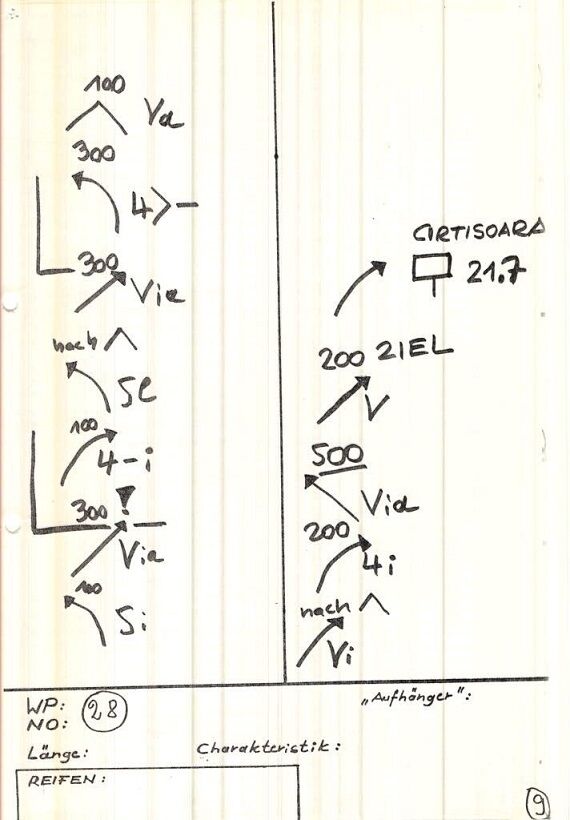 100
Va
300
4>—
300
Via
nach
Sl
100
4-i
!
300
—
Via
100
Si
CIRTISOARA
21.7
200 ZIEL
V
500
Via
200
4i
nach
Vi
WP:
NO:
28
„Aufhänger":
Länge:
Charakteristik:
REIFEN:
9